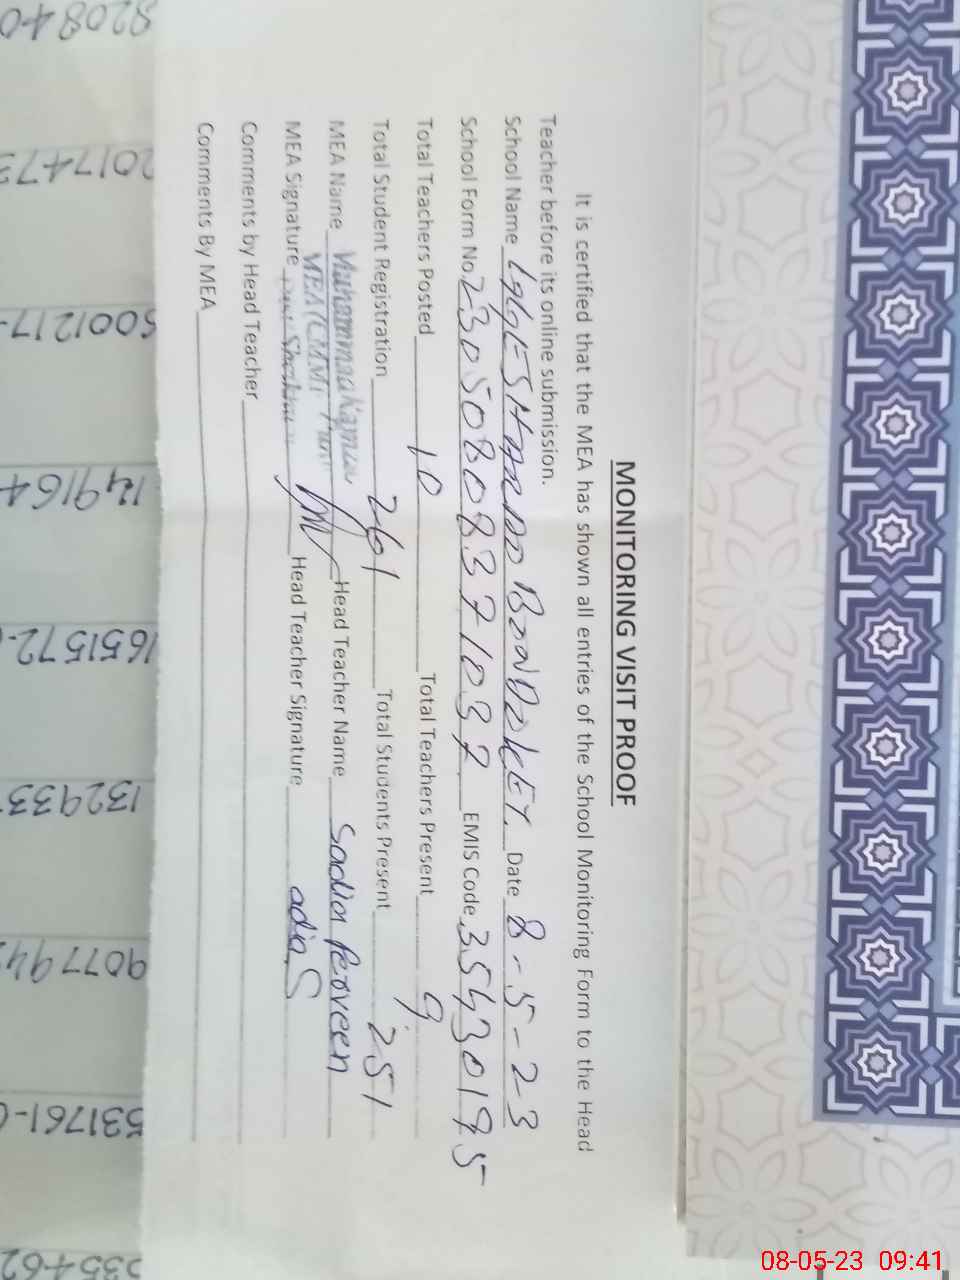 MONITORING VISIT PROOF
It is certified that the MEA has shown all entries of the School Monitoring Form to the Head
Teacher before its online submission.
School Name Date 8-5-23
School Form No. 23050808371037 EMIS Code 35430195
Total Teachers Posted 10 Total Teachers Present 9
Total Student Registration 261 Total Students Present 251
MEA Name Muhammad Head Teacher Name Sadia Perveen
MEA Signature Head Teacher Signature adia S
Comments by Head Teacher
Comments By MEA
82084-0
2017473
5001217-
149164
1651572
132933
907794
531761-0
535462
08-05-23 09:41